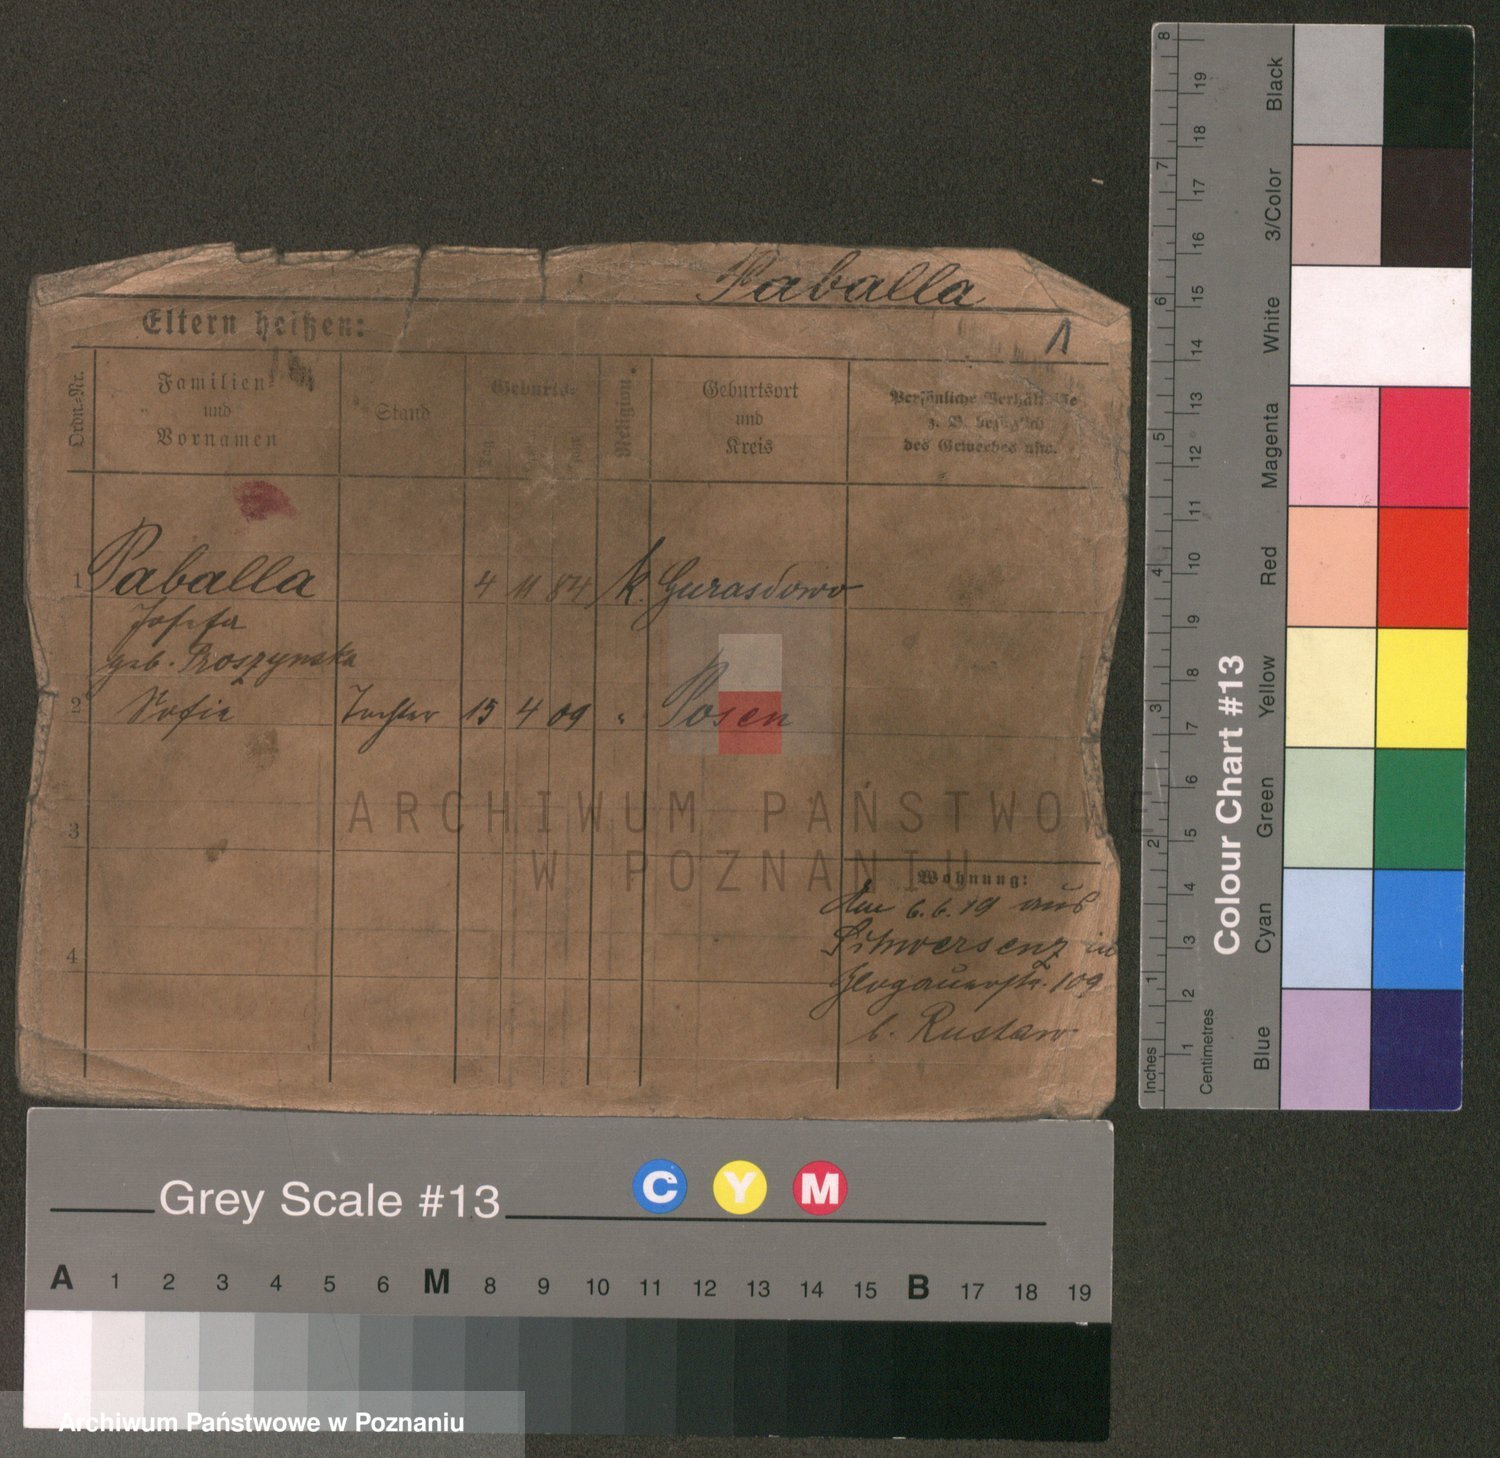 Paballa
1
Eltern heißen:
Ordn.-Nr.
Familien-
und
Vornamen
Stand
Geburts-
Tag
Jahr
Religion.
Geburtsort
und
Kreis
Persönliche Verhältnisse
z. B. bezüglich
des Gewerbes usw.
1 Paballa 4 11 84 k. Gurasdowo
Josefa
geb. Proszynska
2 Sofie Tochter 15 4 09 " Posen
3
4
Wohnung:
6.6.19 aus
Schwersenz in
Glogauerstr. 109
b. Rustaw
ARCHIWUM PAŃSTWOWE
W POZNANIU
Archiwum Państwowe w Poznaniu
Grey Scale #13
C Y M
A 1 2 3 4 5 6 M 8 9 10 11 12 13 14 15 B 17 18 19
Colour Chart #13
Blue Cyan Green Yellow Red Magenta White 3/Color Black
Inches 1 2 3 4 5 6 7 8
Centimetres 1 2 3 4 5 6 7 8 9 10 11 12 13 14 15 16 17 18 19